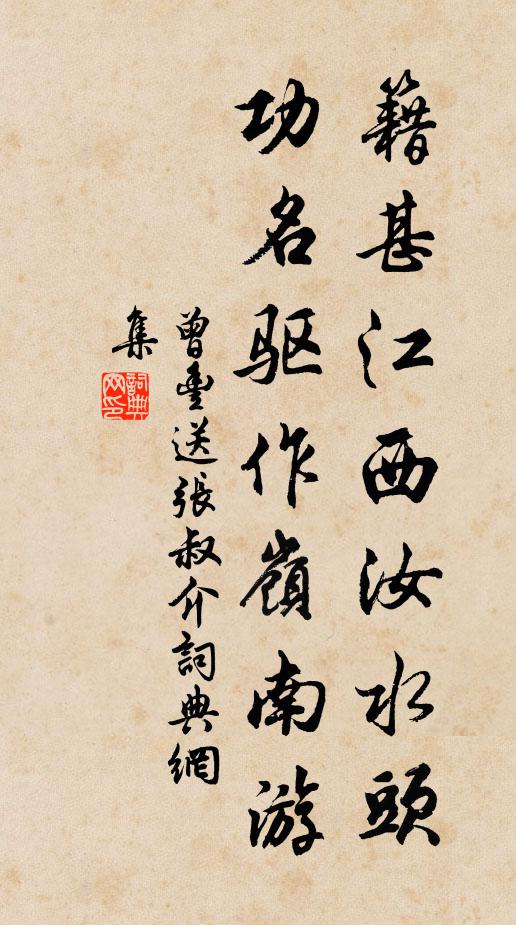 籍甚江西汝水頭
功名驱作嶺南游
曾豐送張叔介詞典網
集
詞典網印